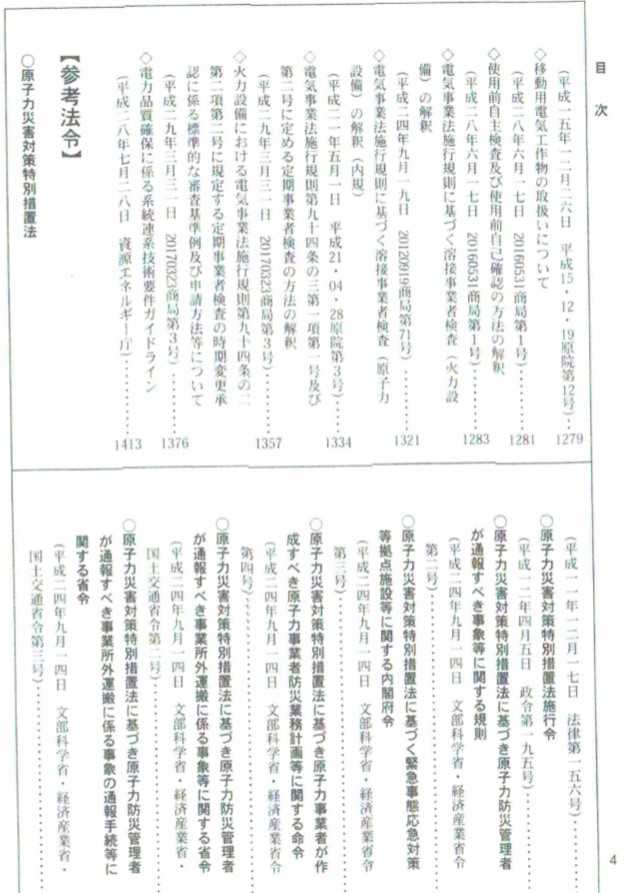 目次
（平成一五年一二月二六日　平成15・12・19原院第12号）……1279
◇移動用電気工作物の取扱いについて
（平成二八年六月一七日　20160531商局第1号）……1281
◇使用前自主検査及び使用前自己確認の方法の解釈
（平成二八年六月一七日　20160531商局第1号）……1283
◇電気事業法施行規則に基づく溶接事業者検査（火力設
備）の解釈
（平成二四年九月一九日　20120919商局第71号）……1321
◇電気事業法施行規則に基づく溶接事業者検査（原子力
設備）の解釈（内規）
（平成二一年五月一日　平成21・04・28原院第3号）……1334
◇電気事業法施行規則第九十四条の三第一項第一号及び
第二号に定める定期事業者検査の方法の解釈
（平成二九年三月三一日　20170323商局第3号）……1357
◇火力設備における電気事業法施行規則第九十四条の二
第二項第二号に規定する定期事業者検査の時期変更承
認に係る標準的な審査基準例及び申請方法等について
（平成二九年三月三一日　20170323商局第3号）……1376
◇電力品質確保に係る系統連系技術要件ガイドライン
（平成二八年七月二八日　資源エネルギー庁）……1413
【参考法令】
○原子力災害対策特別措置法
（平成一一年一二月一七日　法律第一五六号）……
○原子力災害対策特別措置法施行令
（平成一二年四月五日　政令第一九五号）……
○原子力災害対策特別措置法に基づき原子力防災管理者
が通報すべき事象等に関する規則
（平成二四年九月一四日　文部科学省・経済産業省令
第二号）……
○原子力災害対策特別措置法に基づく緊急事態応急対策
等拠点施設等に関する内閣府令
（平成二四年九月一四日　文部科学省・経済産業省令
第三号）……
○原子力災害対策特別措置法に基づき原子力事業者が作
成すべき原子力事業者防災業務計画等に関する命令
（平成二四年九月一四日　文部科学省・経済産業省令
第四号）……
○原子力災害対策特別措置法に基づき原子力防災管理者
が通報すべき事業所外運搬に係る事象等に関する省令
（平成二四年九月一四日　文部科学省・経済産業省・
国土交通省令第二号）……
○原子力災害対策特別措置法に基づき原子力防災管理者
が通報すべき事業所外運搬に係る事象の通報手続等に
関する省令
（平成二四年九月一四日　文部科学省・経済産業省・
国土交通省令第三号）……
4